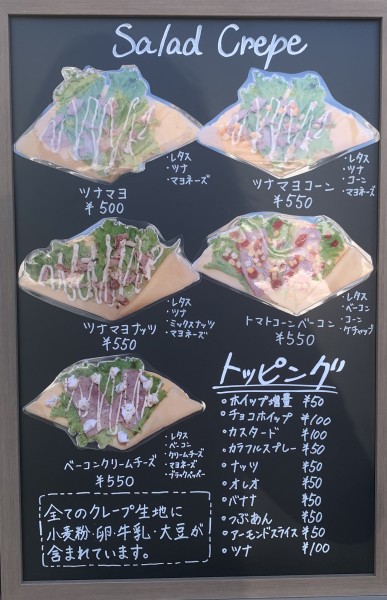 Salad Crepe
ツナマヨ
¥500
・レタス
・ツナ
・マヨネーズ
ツナマヨコーン
¥550
・レタス
・ツナ
・コーン
・マヨネーズ
ツナマヨナッツ
¥550
・レタス
・ツナ
・ミックスナッツ
・マヨネーズ
トマトコーンベーコン
¥550
・レタス
・ベーコン
・コーン
・ケチャップ
ベーコンクリームチーズ
¥550
・レタス
・ベーコン
・クリームチーズ
・マヨネーズ
・ブラックペッパー
トッピング
・ホイップ増量 ¥50
・チョコホイップ ¥100
・カスタード ¥100
・カラフルスプレー ¥50
・ナッツ ¥50
・オレオ ¥50
・バナナ ¥50
・つぶあん ¥50
・アーモンドスライス ¥50
・ツナ ¥100
全てのクレープ生地に
小麦粉・卵・牛乳・大豆が
含まれています。